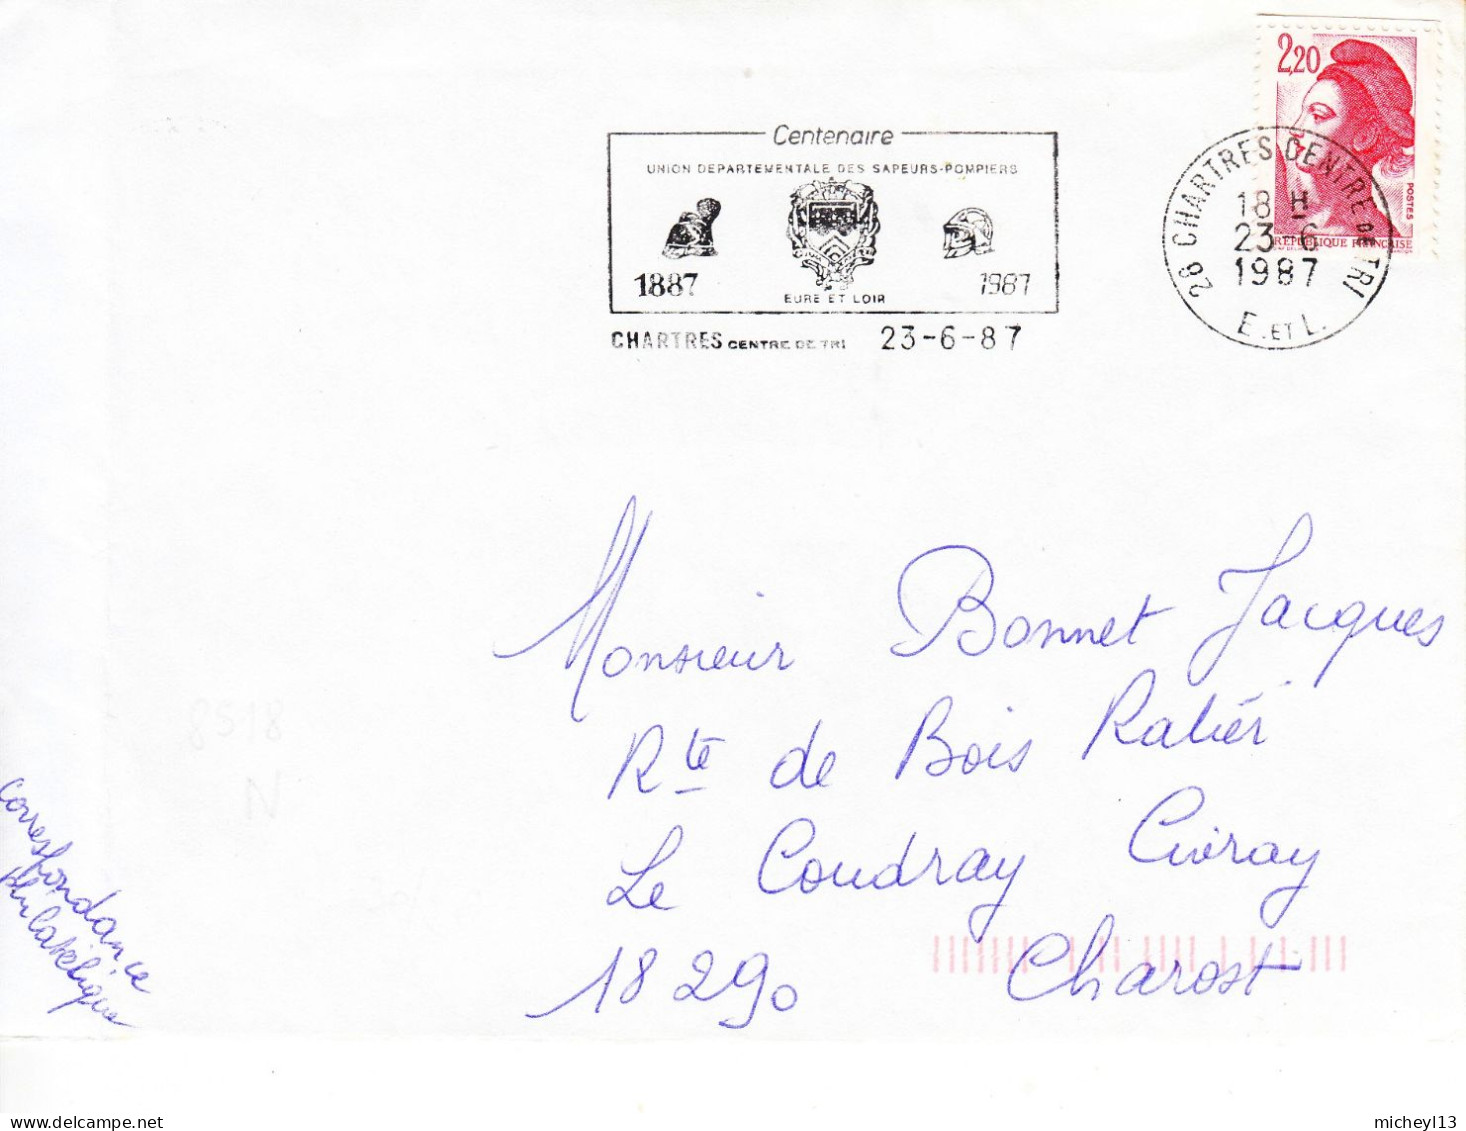 2,20
POSTES
REPUBLIQUE FRANÇAISE
Centenaire
UNION DEPARTEMENTALE DES SAPEURS-POMPIERS
1887
1987
EURE ET LOIR
CHARTRES CENTRE DE TRI 23-6-87
28 CHARTRES CENTRE DE TRI
18 H
23-6
1987
E. ET L.
Monsieur Bonnet Jacques
Rte de Bois Ratier
Le Coudray Civray
18290 Charost
8518
N
correspondance
philatélique
micheyl13